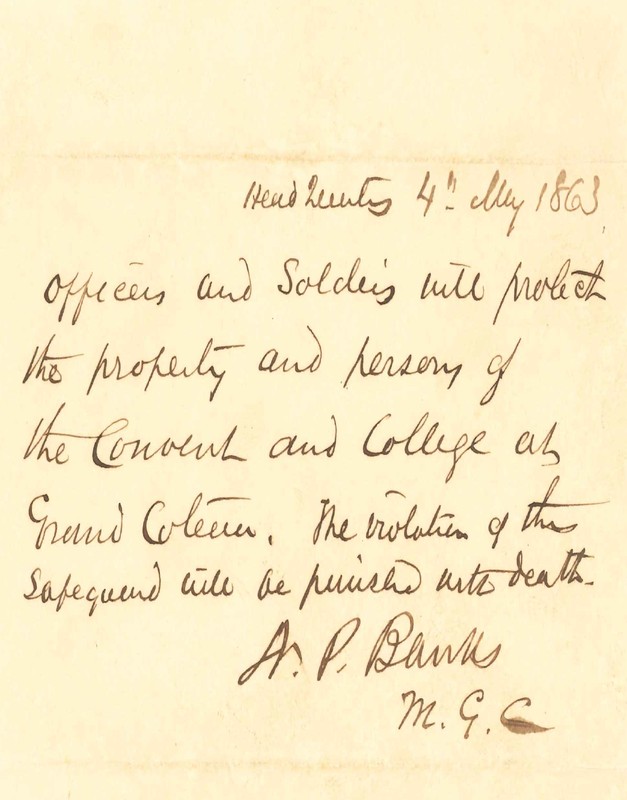 Head Quarters 4th May 1863
Officers and Soldiers will protect
the property and persons of
the Convent and College at
Grand Coteau. The violation of this
Safeguard will be punished with death.
N. P. Banks
M. G. C